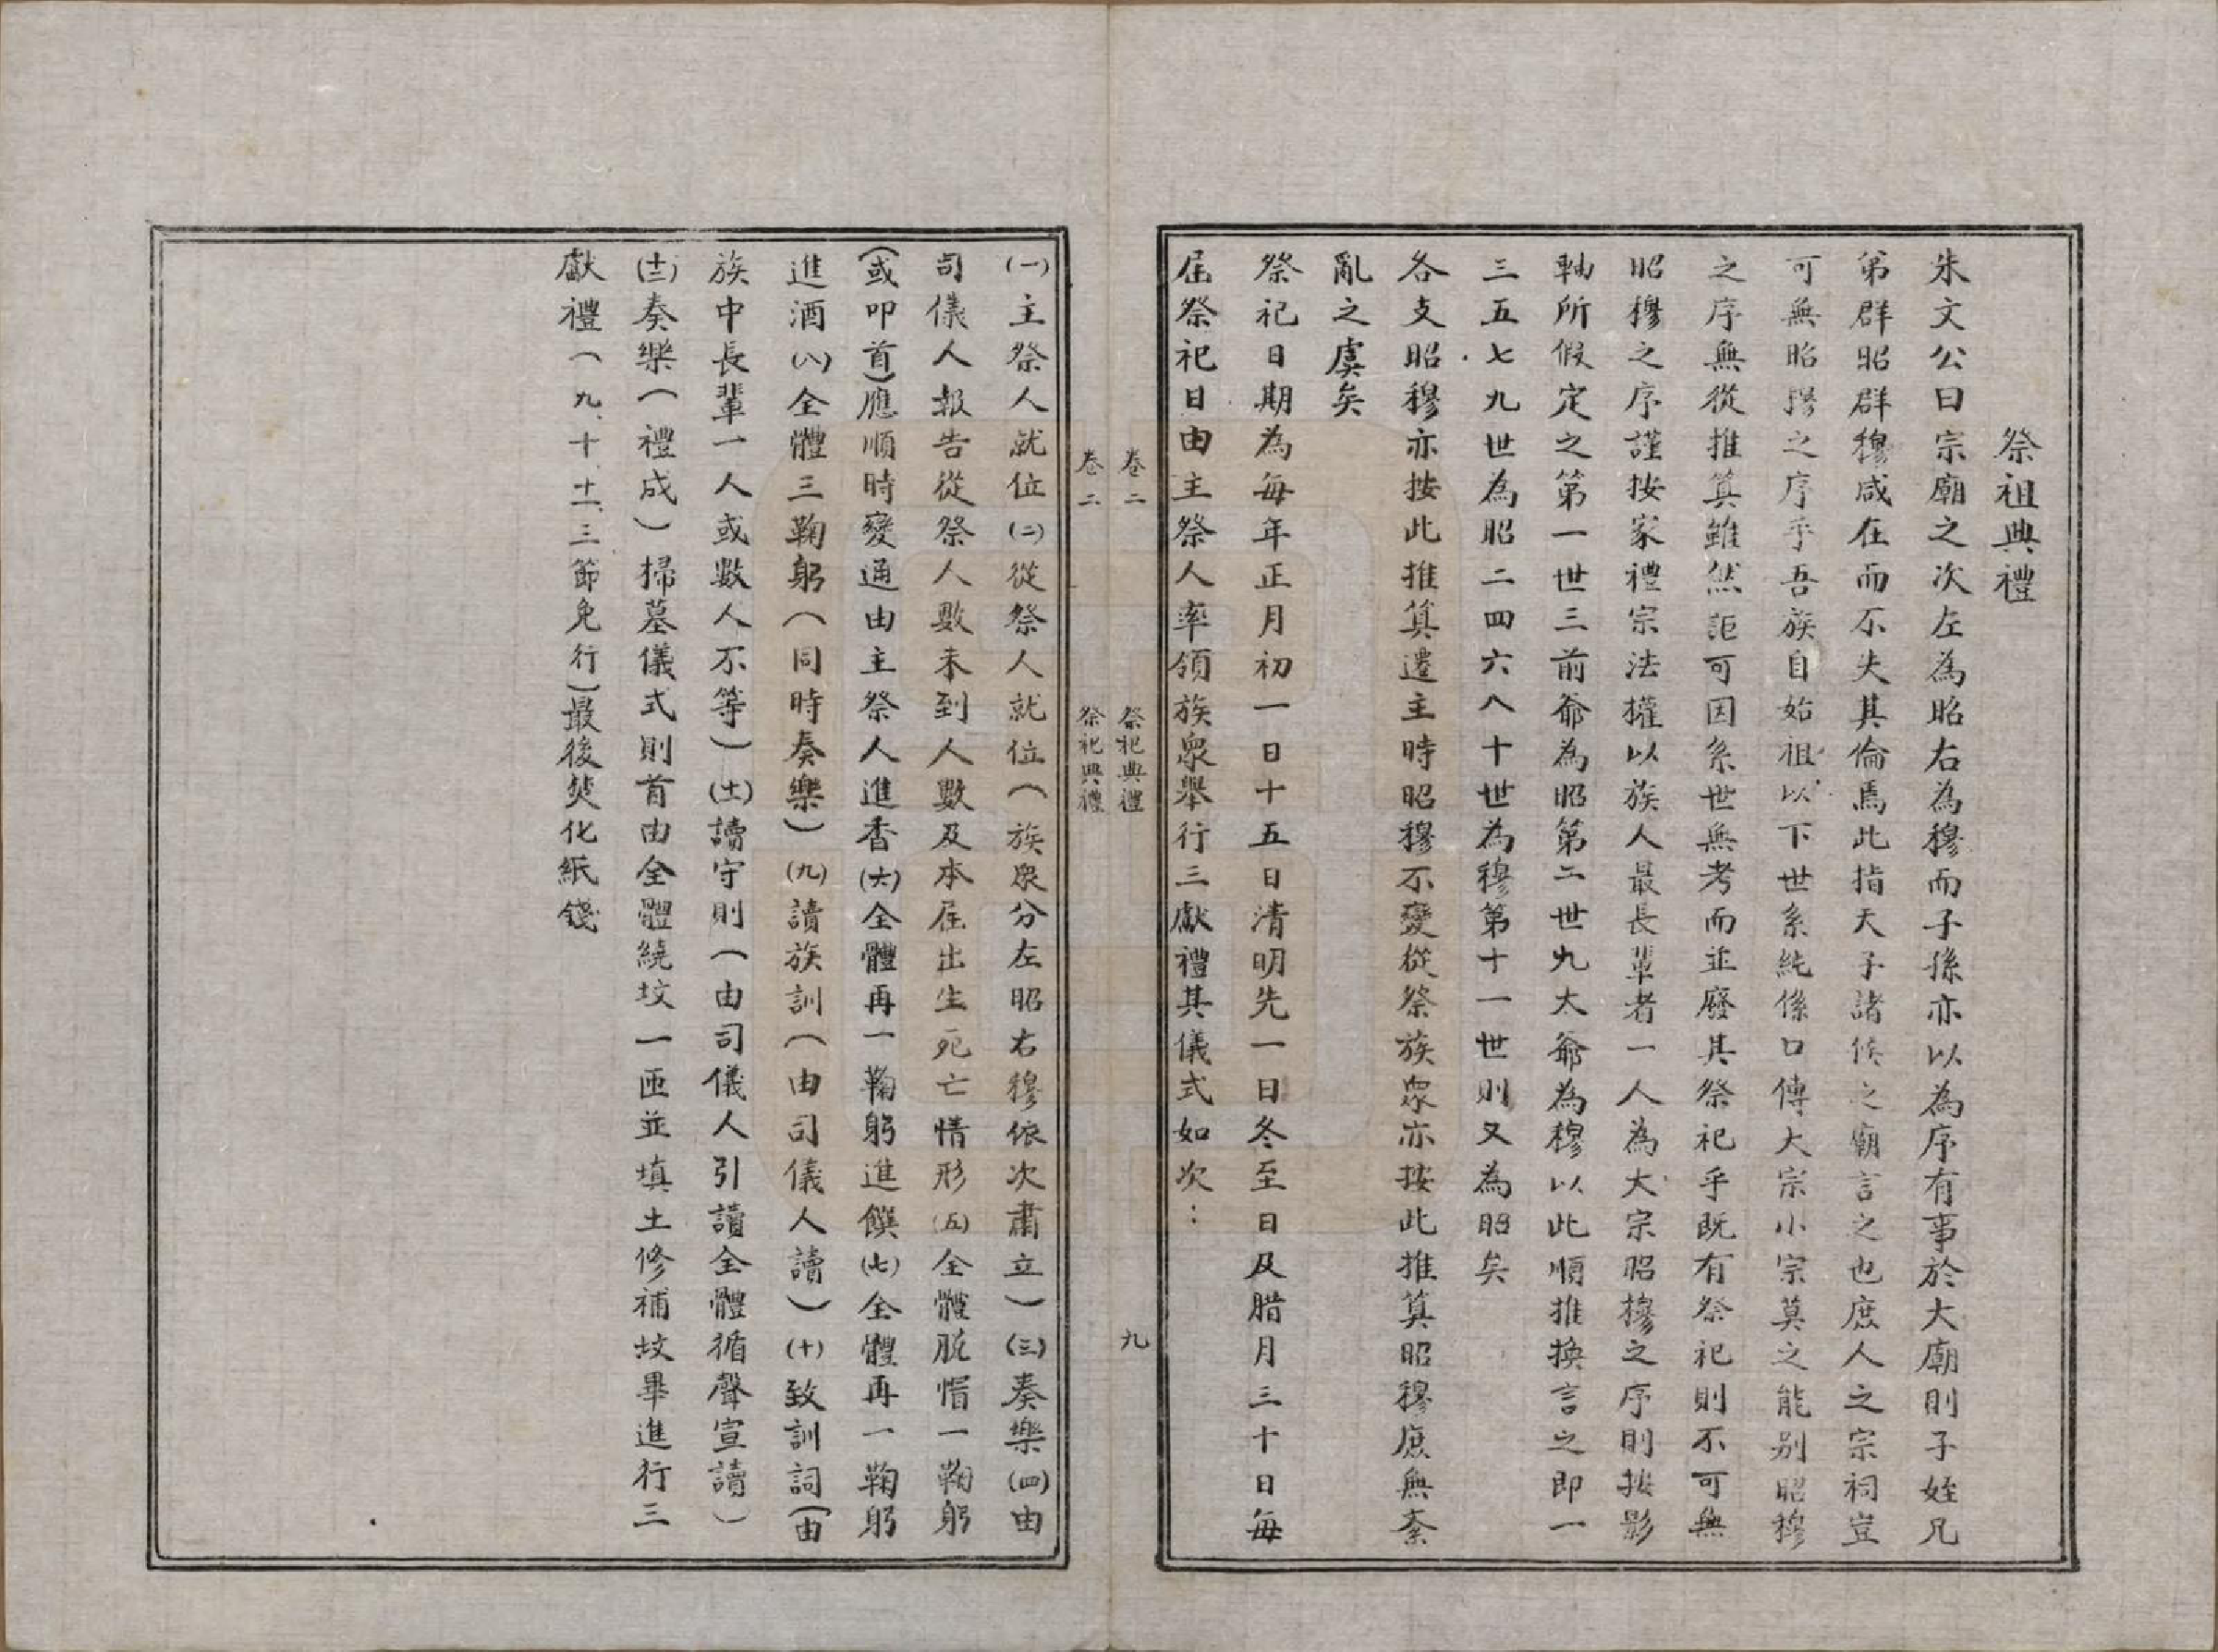 祭祖典禮
朱文公曰宗廟之次左為昭右為穆而子孫亦以為序有事於大廟則子姪兄
弟群昭群穆咸在而不失其倫焉此指天子諸侯之廟言之也庶人之宗祠豈
可無昭穆之序乎吾族自始祖以下世系純係口傳大宗小宗莫之能別昭穆
之序無從推算雖然詎可因系世無考而並廢其祭祀乎既有祭祀則不可無
昭穆之序謹按家禮宗法權以族人最長輩者一人為大宗昭穆之序則按影
軸所假定之第一世三前爺為昭第二世九大爺為穆以此順推換言之即一
三五七九世為昭二四六八十世為穆第十一世則又為昭矣
各支昭穆亦按此推算遷主時昭穆不變從祭族眾亦按此推算昭穆庶無紊
亂之虞矣
祭祀日期為每年正月初一日十五日清明先一日冬至日及腊月三十日每
屆祭祀日由主祭人率領族眾舉行三獻禮其儀式如次：
卷二 祭祀典禮 九
卷二 祭祀典禮
(一)主祭人就位(二)從祭人就位(族眾分左昭右穆依次肅立)(三)奏樂(四)由
司儀人報告從祭人數未到人數及本屆出生死亡情形(五)全體脫帽一鞠躬
(或叩首)應順時變通由主祭人進香(六)全體再一鞠躬進饌(七)全體再一鞠躬
進酒(八)全體三鞠躬(同時奏樂)(九)讀族訓(由司儀人讀)(十)致訓詞(由
族中長輩一人或數人不等)(十一)讀守則(由司儀人引讀全體循聲宣讀)
(十二)奏樂(禮成)掃墓儀式則首由全體繞墳一匝並填土修補墳畢進行三
獻禮(九、十、十一、三節免行)最後焚化紙錢